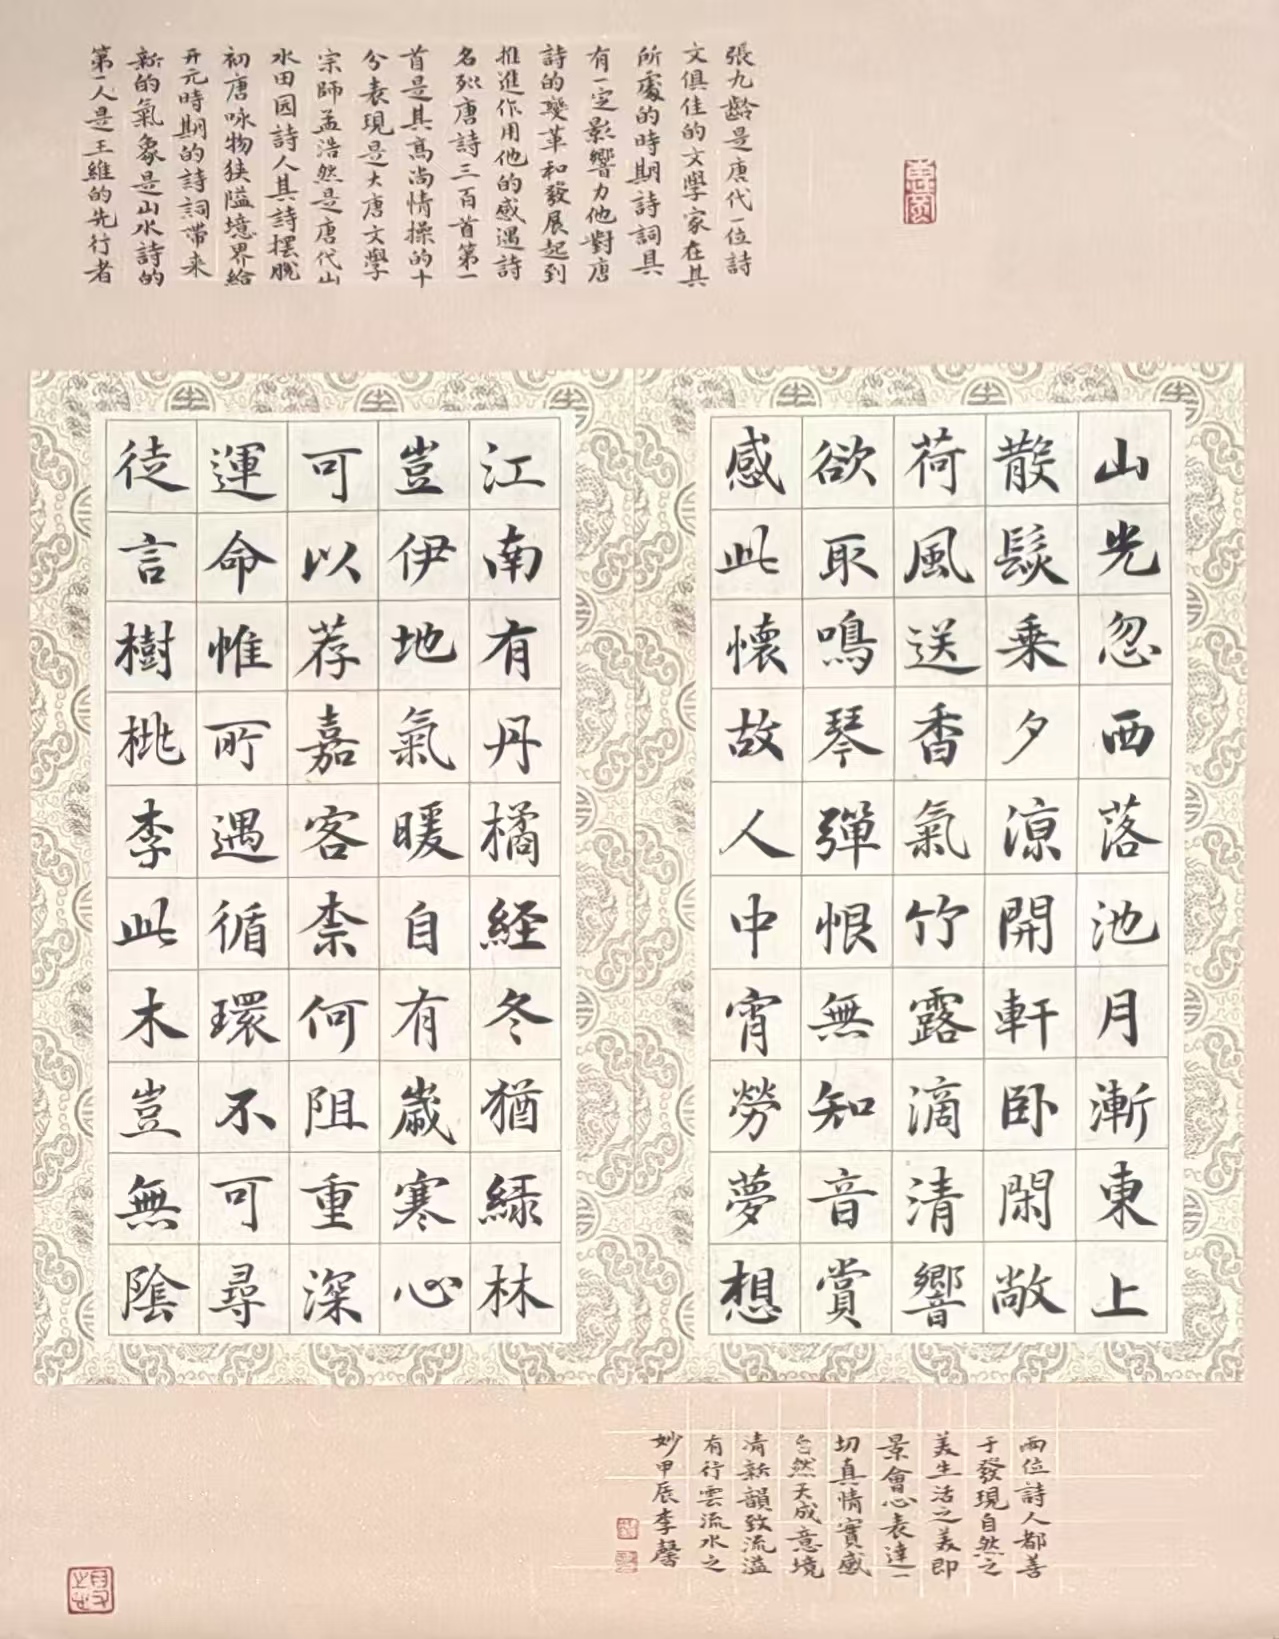 張九齡是唐代一位詩
文俱佳的文學家在其
所處的時期詩詞具
有一定影響力他對唐
詩的變革和發展起到
推進作用他的感遇詩
名列唐詩三百首第一
首是其高尚情操的十
分表現是大唐文學
宗師孟浩然是唐代山
水田园詩人其詩摆脱
初唐咏物狭隘境界給
开元時期的詩詞带来
新的氣象是山水詩的
第一人是王維的先行者
山光忽西落池月漸東上
散髮乘夕涼開軒卧閑敞
荷風送香氣竹露滴清響
欲取鳴琴彈恨無知音賞
感此懷故人中宵勞夢想
江南有丹橘経冬猶綠林
豈伊地氣暖自有嵗寒心
可以荐嘉客柰何阻重深
運命惟所遇循環不可尋
徒言樹桃李此木豈無陰
兩位詩人都善
于發現自然之
美生活之美即
景會心表達一
切真情實感
自然天成意境
清新韻致流溢
有行雲流水之
妙甲辰李馨